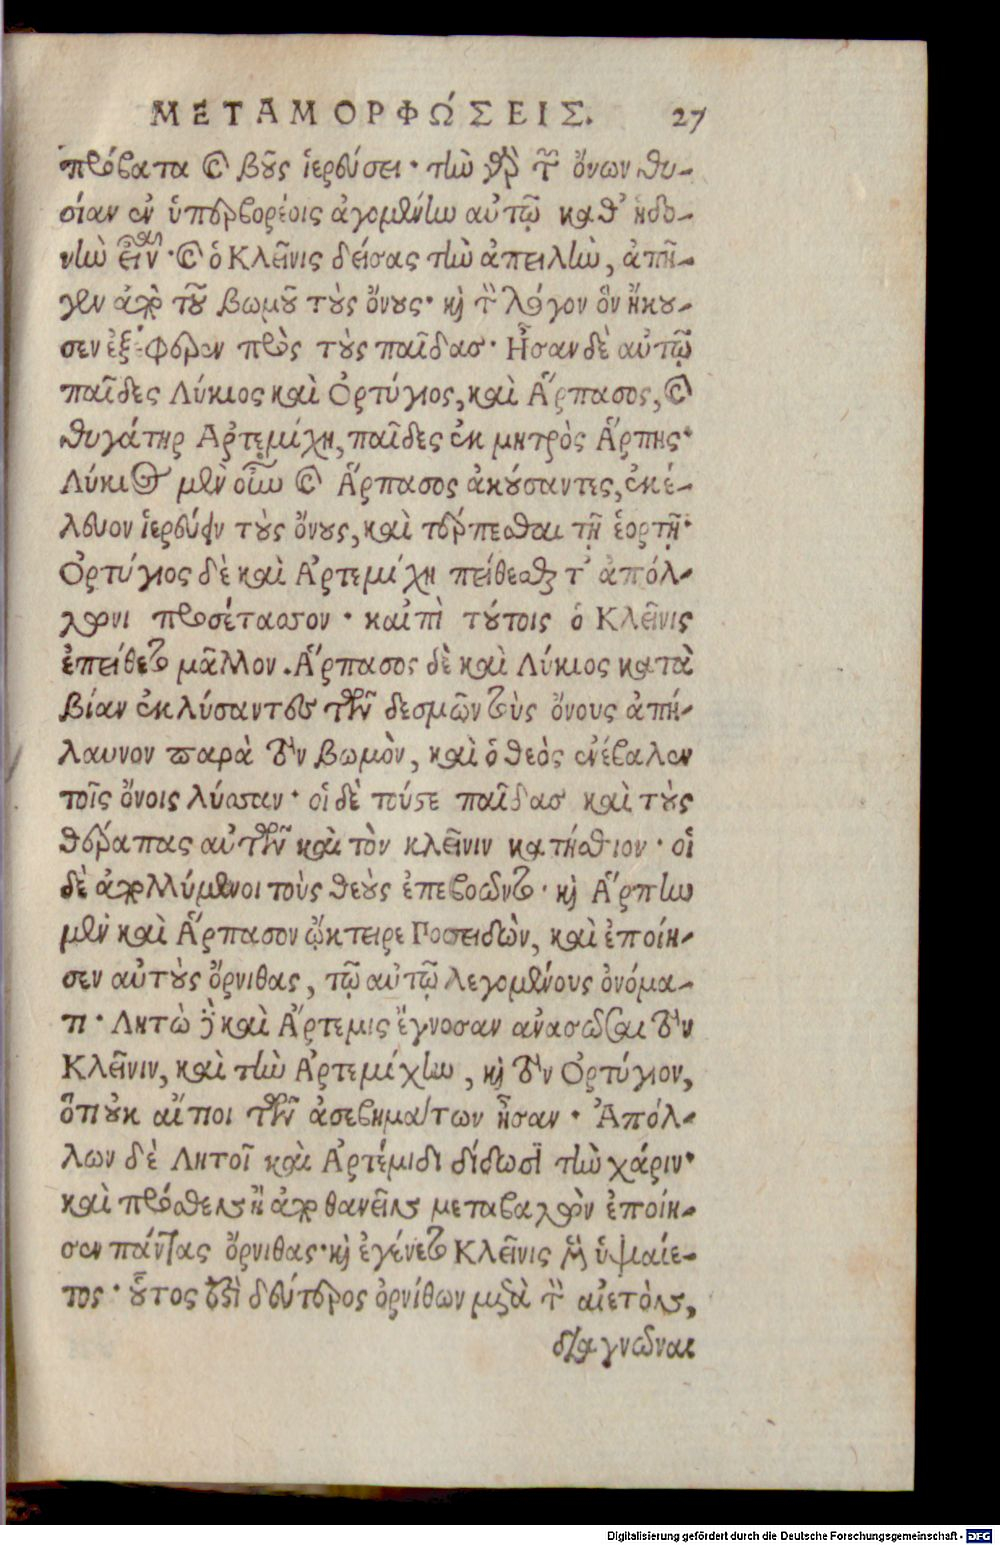 ΜΕΤΑΜΟΡΦΏΣΕΙΣ. 27
πρόβατα καὶ βοῦς ἱερεύσει· τὴν γὰρ τῶν ὄνων θυ-
σίαν ἐν ὑπερβορέοις ἀγομένην αὐτῷ καθ' ἡδο-
νὴν εἶναι· καὶ ὁ Κλεῖνις δείσας τὴν ἀπειλὴν, ἀπῆ-
γεν ἀπὸ τοῦ βωμοῦ τοὺς ὄνους· καὶ τὸν λόγον ὃν ἤκου-
σεν ἐξέφερεν πρὸς τοὺς παῖδας· Ἦσαν δὲ αὐτῷ
παῖδες Λύκιος καὶ Ὀρτύγιος, καὶ Ἅρπασος, καὶ
θυγάτηρ Ἀρτεμίχη, παῖδες ἐκ μητρὸς Ἅρπης·
Λύκιος μὲν οὖν καὶ Ἅρπασος ἀκούσαντες, ἐκέ-
λευον ἱερεύειν τοὺς ὄνους, καὶ τέρπεσθαι τῇ ἑορτῇ·
Ὀρτύγιος δὲ καὶ Ἀρτεμίχη πείθεσθαι τῷ ἀπόλ-
λωνι προσέτασσον· καἰπὶ τούτοις ὁ Κλεῖνις
ἐπείθετο μᾶλλον. Ἅρπασος δὲ καὶ Λύκιος κατὰ
βίαν ἐκλύσαντες τῶν δεσμῶν τοὺς ὄνους ἀπή-
λαυνον παρὰ τὸν βωμὸν, καὶ ὁ θεὸς ἐνέβαλεν
τοῖς ὄνοις λύσσαν· οἱ δὲ τούστε παῖδας καὶ τοὺς
θεράπας αὐτῶν καὶ τὸν κλεῖνιν κατήσθιον· οἱ
δὲ ἀπολλύμενοι τοὺς θεοὺς ἐπεβοῶντο· καὶ Ἅρπην
μὲν καὶ Ἅρπασον ᾤκτειρε Ποσειδὼν, καὶ ἐποίη-
σεν αὐτοὺς ὄρνιθας, τῷ αὐτῷ λεγομένους ὀνόμα-
τι· Λητὼ δὲ καὶ Ἄρτεμις ἔγνοσαν ἀνασῶσαι τὸν
Κλεῖνιν, καὶ τὴν Ἀρτεμίχην, καὶ τὸν Ὀρτύγιον,
ὅτι οὐκ αἴτιοι τῶν ἀσεβημάτων ἦσαν· Ἀπόλ-
λων δὲ Λητοῖ καὶ Ἀρτέμιδι δίδωσι τὴν χάριν·
καὶ πρόσθεν ἢ ἀποθανεῖν μεταβαλὼν ἐποίη-
σεν πάντας ὄρνιθας· καὶ ἐγένετο Κλεῖνις μὲν ὑψιαίε-
τος· οὗτος ἐστὶ δεύτερος ὀρνίθων μετὰ τὸν αἰετὸν,
διαγνῶναι
Digitalisierung gefördert durch die Deutsche Forschungsgemeinschaft - DFG